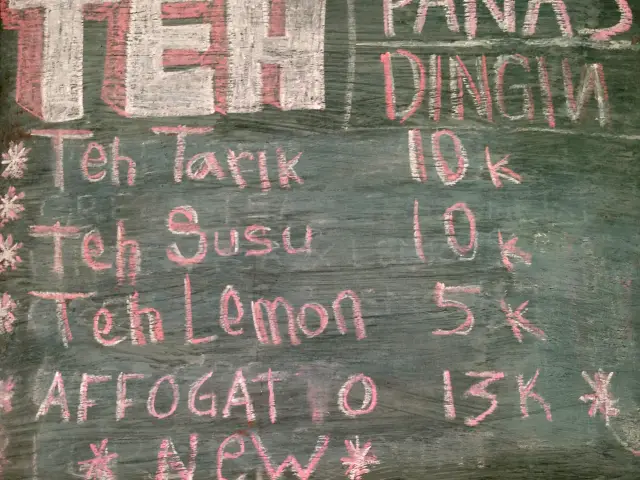 TEH PANAS
DINGIN
Teh Tarik 10K
Teh Susu 10K
Teh Lemon 5K
AFFOGATTO 13K
* NEW *